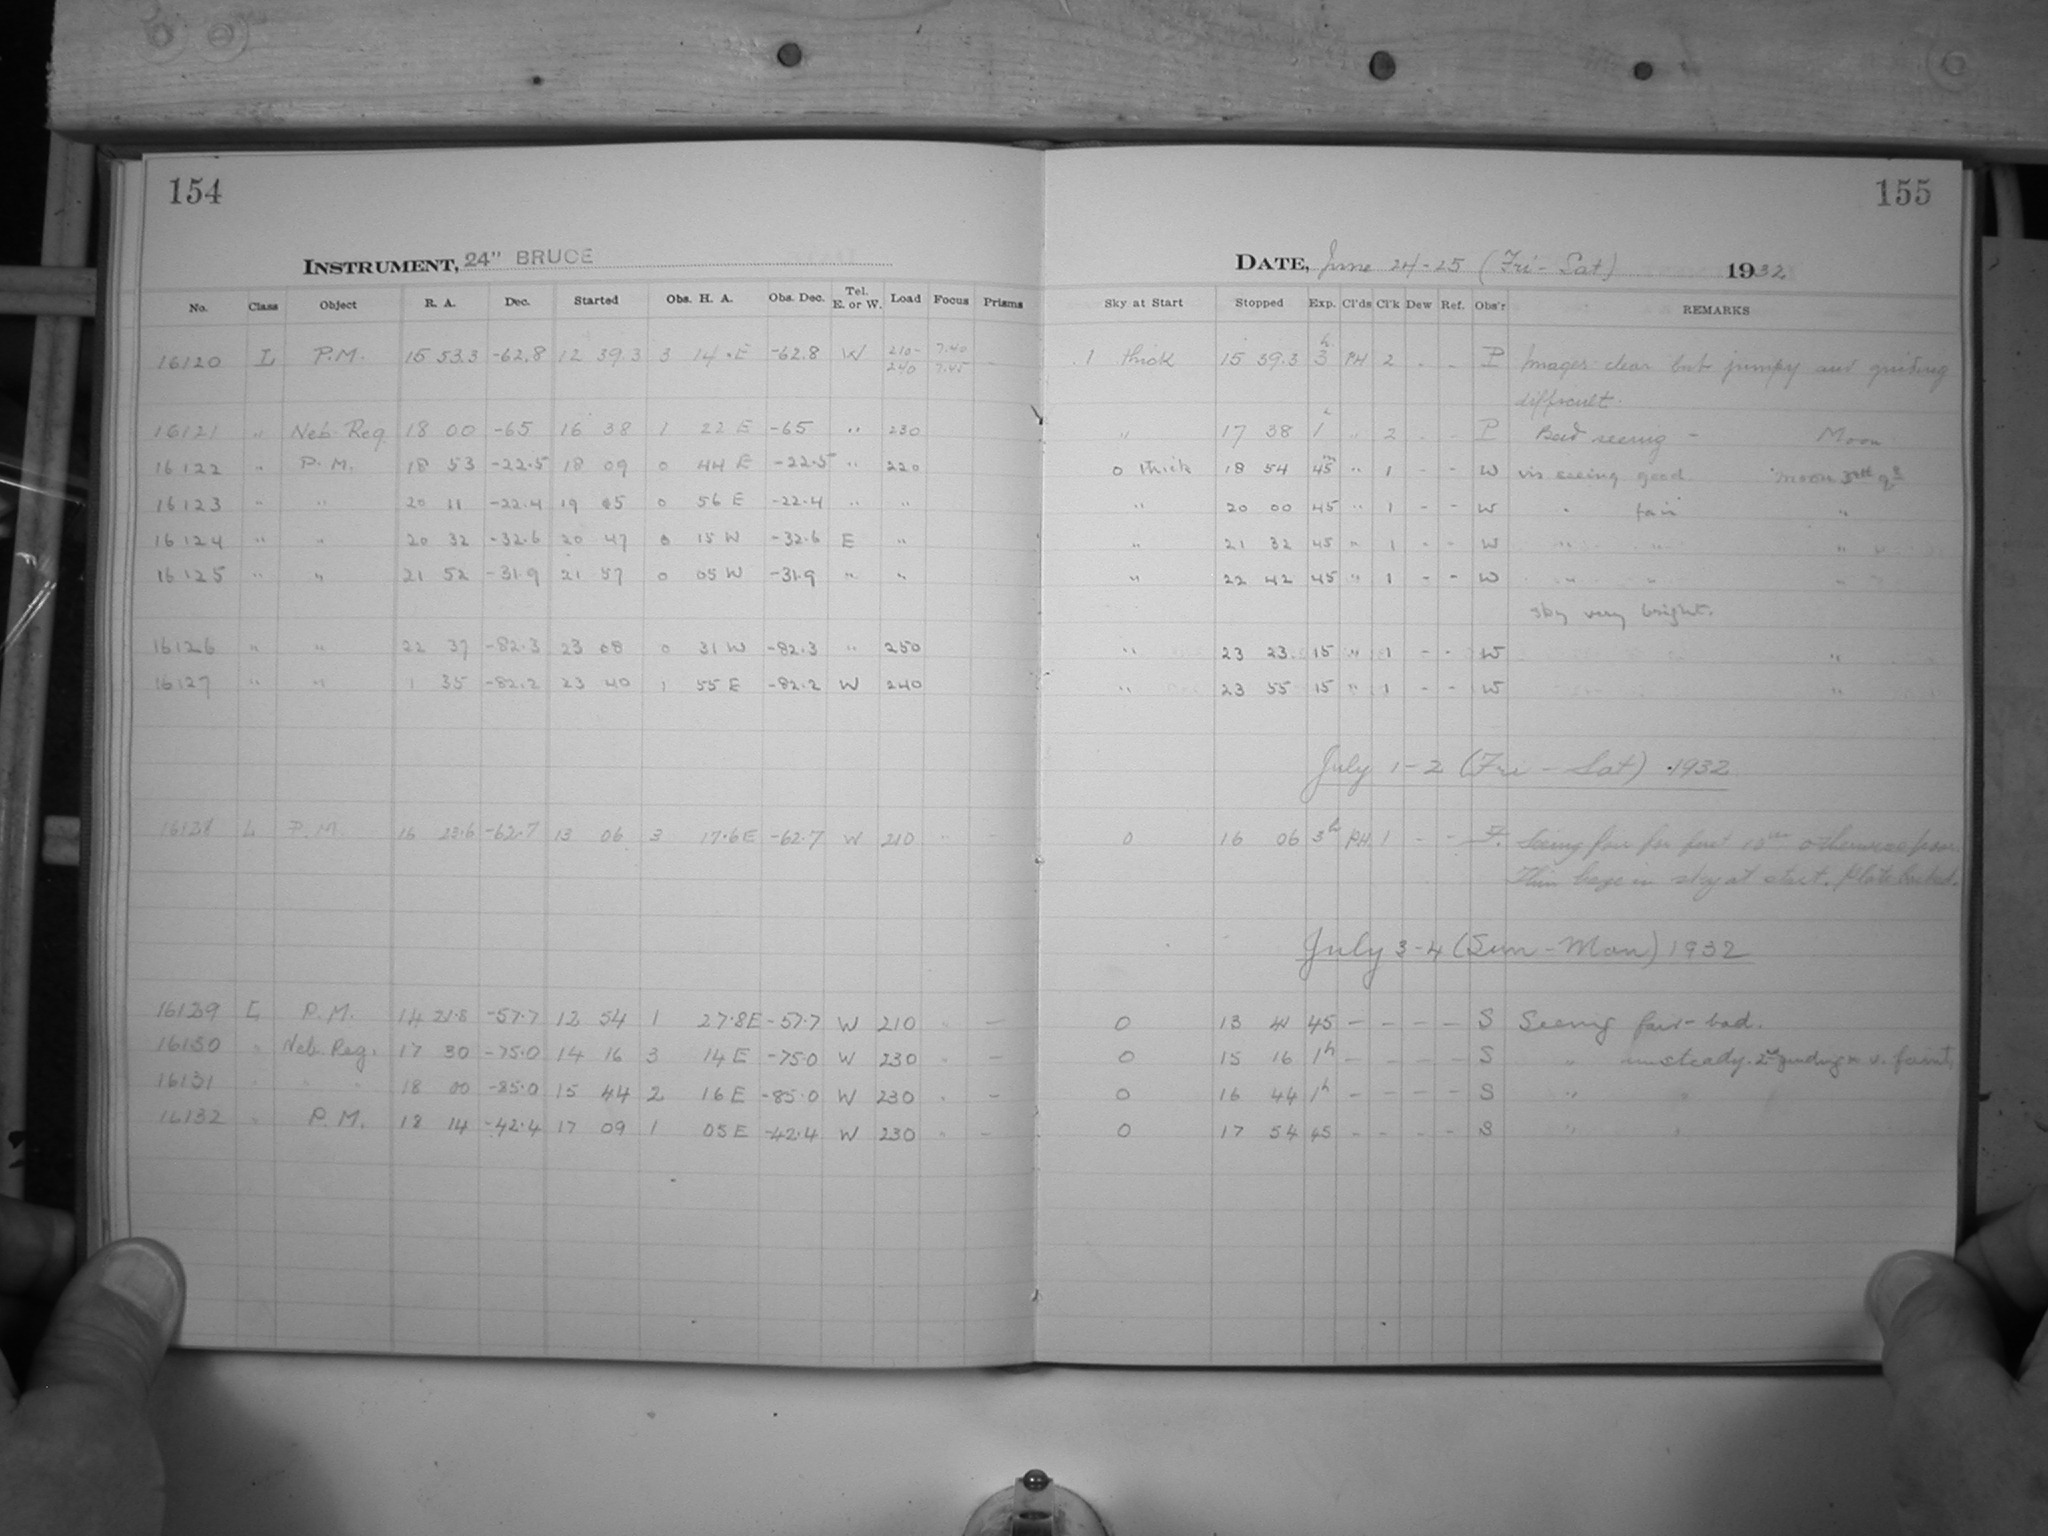 154
155
INSTRUMENT, 24" BRUCE
DATE, June 24-25 (Fri-Sat) 1932
No. Class Object R. A. Dec. Started Obs. H. A. Obs. Dec. Tel. E. or W. Load Focus Prisms Sky at Start Stopped Exp. Cl'ds Cl'k Dew Ref. Obs'r REMARKS
16120 L P.M. 15 53.3 -62.8 12 39.3 3 14 .E -62.8 W 210- 240 7.40 7.45 - 1 thick 15 39.3 3h PH 2 - - P Images clear but jumpy and guiding
difficult.
16121 " Neb. Reg. 18 00 -65 16 38 1 22 E -65 " 230 " 17 38 1 " 2 - - P Bad seeing - Moon
16122 " P.M. 18 53 -22.5 18 09 0 44 E -22.5 " 220 0 thick 18 54 45m " 1 - - W vis seeing good moon
16123 " " 20 11 -22.4 19 05 0 56 E -22.4 " " " 20 00 45 " 1 - - W " fair "
16124 " " 20 32 -32.6 20 47 0 15 W -32.6 E " " 21 32 45 " 1 - - W " " "
16125 " " 21 52 -31.9 21 57 0 05 W -31.9 " " " 22 42 45 " 1 - - W " " "
sky very bright.
16126 " " 22 37 -82.3 23 08 0 31 W -82.3 " 250 " 23 23 15 " 1 - - W "
16127 " " 1 35 -82.2 23 40 1 55 E -82.2 W 240 " 23 55 15 " 1 - - W "
July 1-2 (Fri - Sat) 1932
16128 L P.M. 16 23.6 -62.7 13 06 3 17.6 E -62.7 W 210 " - 0 16 06 3h PH 1 - - Seeing fair for first otherwise poor.
Thin haze in sky at start. Plate backed.
July 3-4 (Sun-Mon) 1932
16129 L P.M. 14 21.8 -57.7 12 54 1 27.8 E -57.7 W 210 " - 0 13 45 - - - - S Seeing fair-bad.
16130 " Neb. Reg. 17 30 -75.0 14 16 3 14 E -75.0 W 230 " - 0 15 16 1h - - - - S " unsteady. 2nd guiding * v. faint.
16131 " " " 18 00 -85.0 15 44 2 16 E -85.0 W 230 " - 0 16 44 1h - - - - S " "
16132 " P.M. 18 14 -42.4 17 09 1 05 E -42.4 W 230 " - 0 17 54 45 - - - - S " "